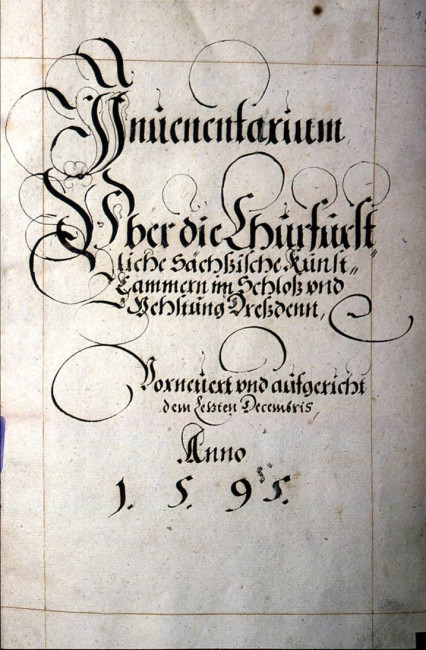 Inuenentarium
Vber die Churfürst=
liche Sächssische Kunst=
Cammern im Schloß vnd
Vehstung Dreßdenn,
Vorneuert vnd aufgericht
dem Letzten Decembris,
Anno
1. 5. 9 5.